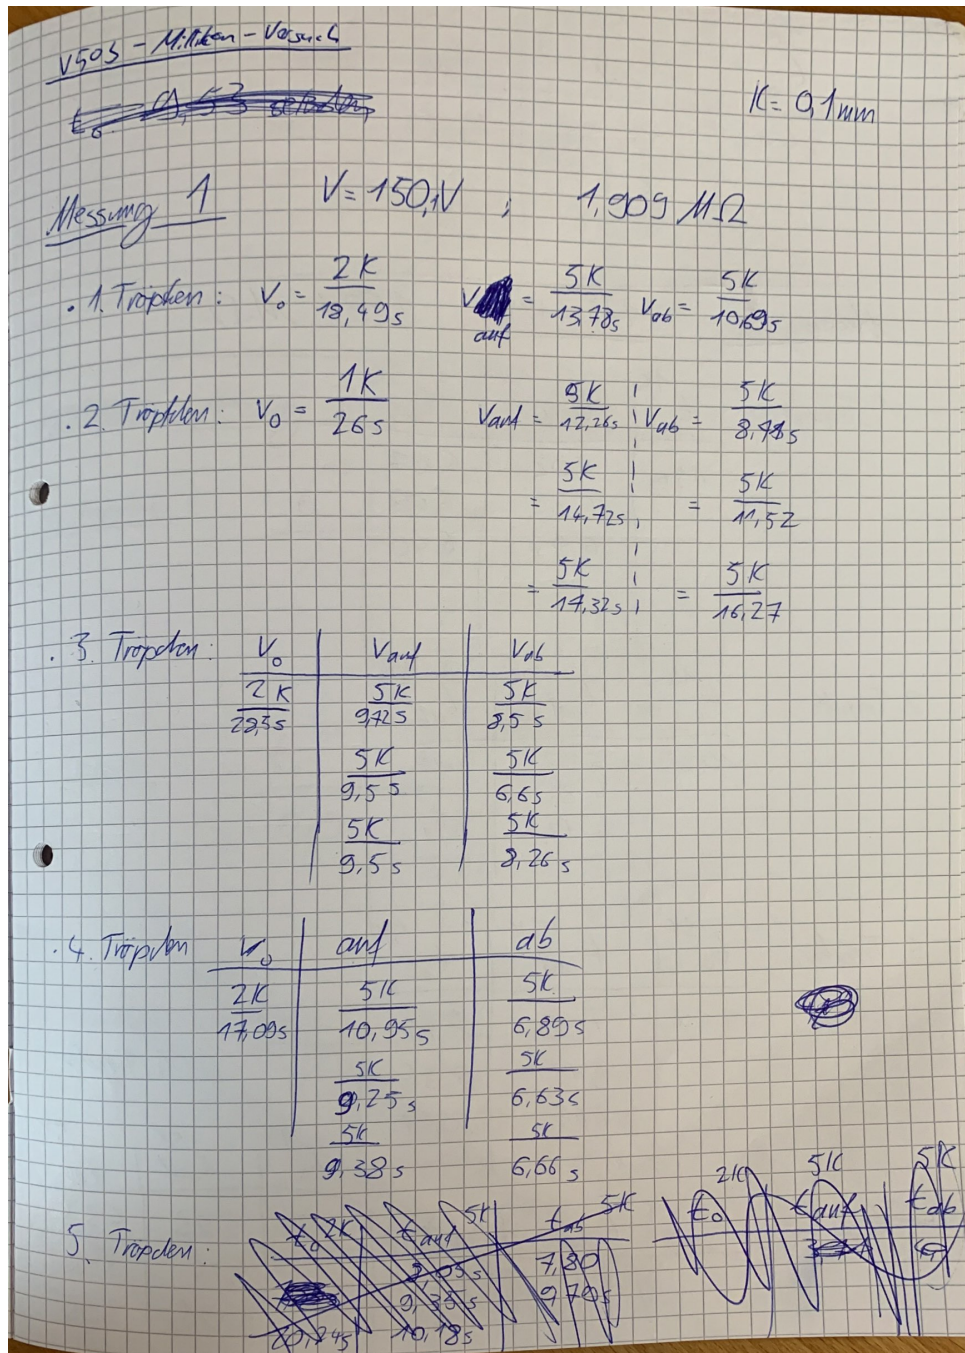 V503 - Millikan - Versuch
K = 0,1mm
Messung 1 V = 150,1V ; 1,909 MΩ
. 1. Tröpchen : V₀ = 2K / 18,49s V auf = 5K / 13,78s V ab = 5K / 10,69s
. 2. Tröpfchen : V₀ = 1K / 26s V auf = 5K / 12,26s V ab = 5K / 8,78s
= 5K / 14,72s = 5K / 11,52
= 5K / 17,32s = 5K / 16,27
. 3. Tröpchen : V₀ V auf V ab
2K / 28,3s 5K / 9,72s 5K / 8,5s
5K / 9,5s 5K / 6,6s
5K / 9,5s 5K / 8,26s
. 4. Tröpchen V₀ auf ab
2K / 17,09s 5K / 10,95s 5K / 6,89s
5K / 9,25s 5K / 6,63s
5K / 9,38s 5K / 6,66s
5. Tröpchen : t₀ 2K t auf 5K t ab 5K t₀ 2K t auf 5K t ab 5K
7,80
9,35s
20,24s 10,18s